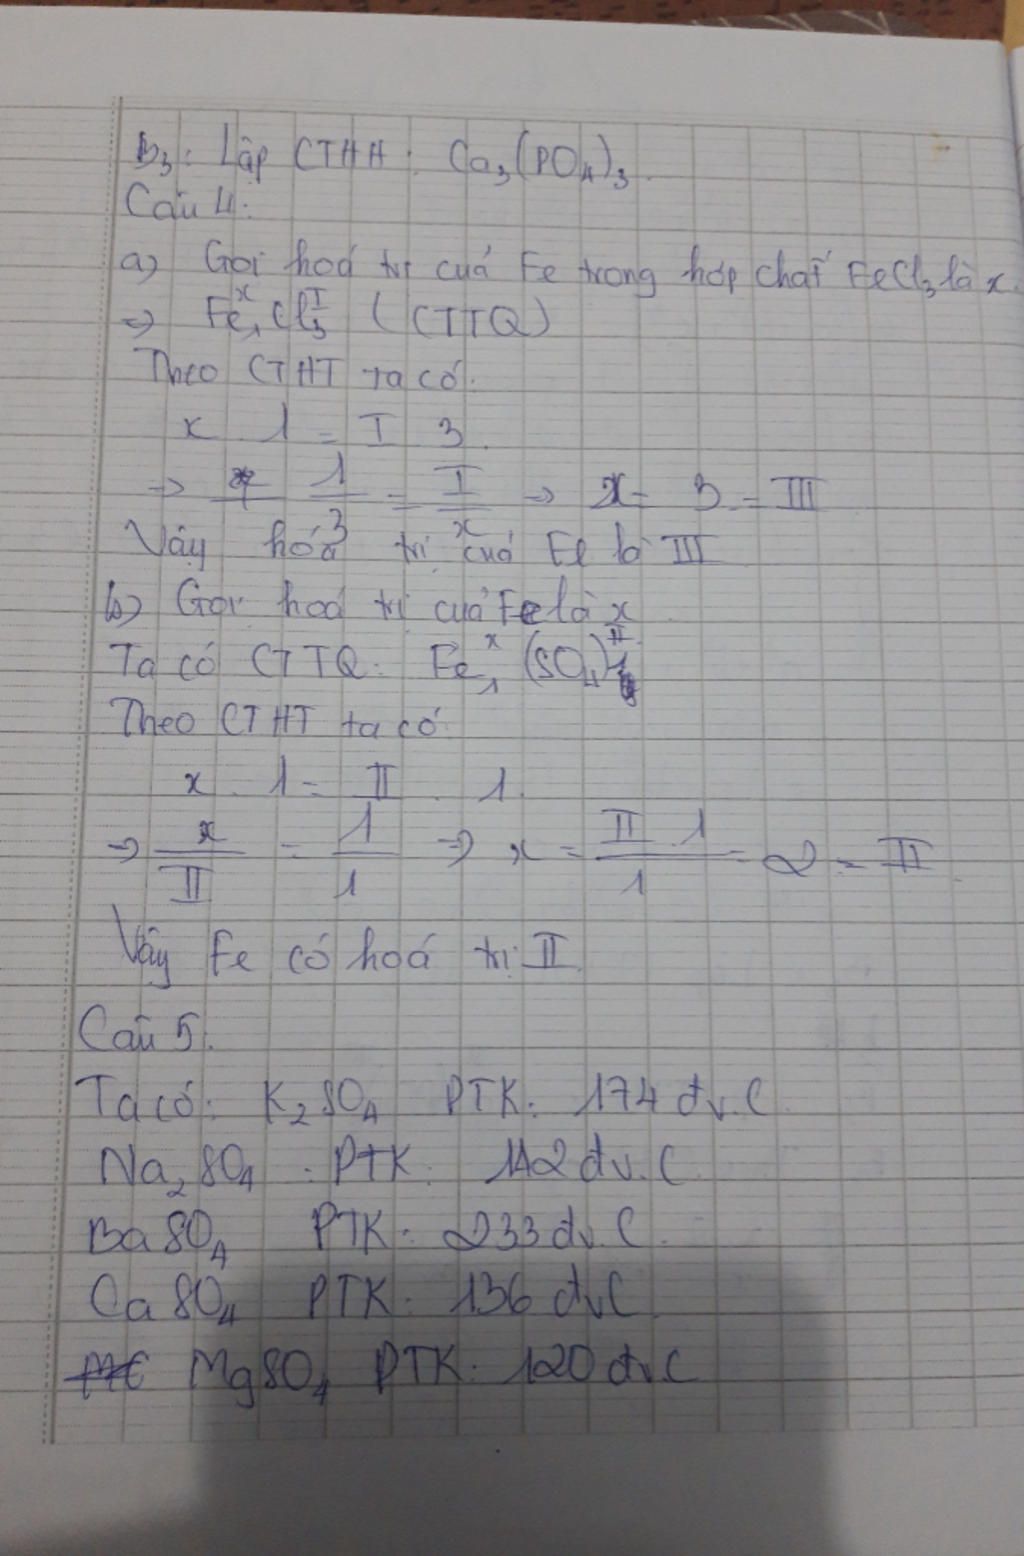 B3: Lập CTHH: Ca3(PO4)3
Câu 4:
a) Gọi hoá trị cuả Fe trong hợp chất FeCl3 là x.
=> Fe1^x Cl3^I (CTTQ)
Theo CTHT ta có:
x . 1 = I . 3
-> 1/3 = I/x -> x = 3 = III
Vậy hóa trị cuả Fe là III
b) Gọi hoá trị cuả Fe là x
Ta có CTTQ: Fe1^x (SO4)1^II
Theo CTHT ta có:
x . 1 = II . 1
=> x/II = 1/1 => x = II . 1/1 = 2 = II
Vậy Fe có hoá trị II
Câu 5:
Ta có: K2SO4 PTK: 174 đv.C
Na2SO4 : PTK: 142 đv.C
BaSO4 PTK: 233 đv.C
CaSO4 PTK: 136 đvC
MgSO4 PTK: 120 đvC